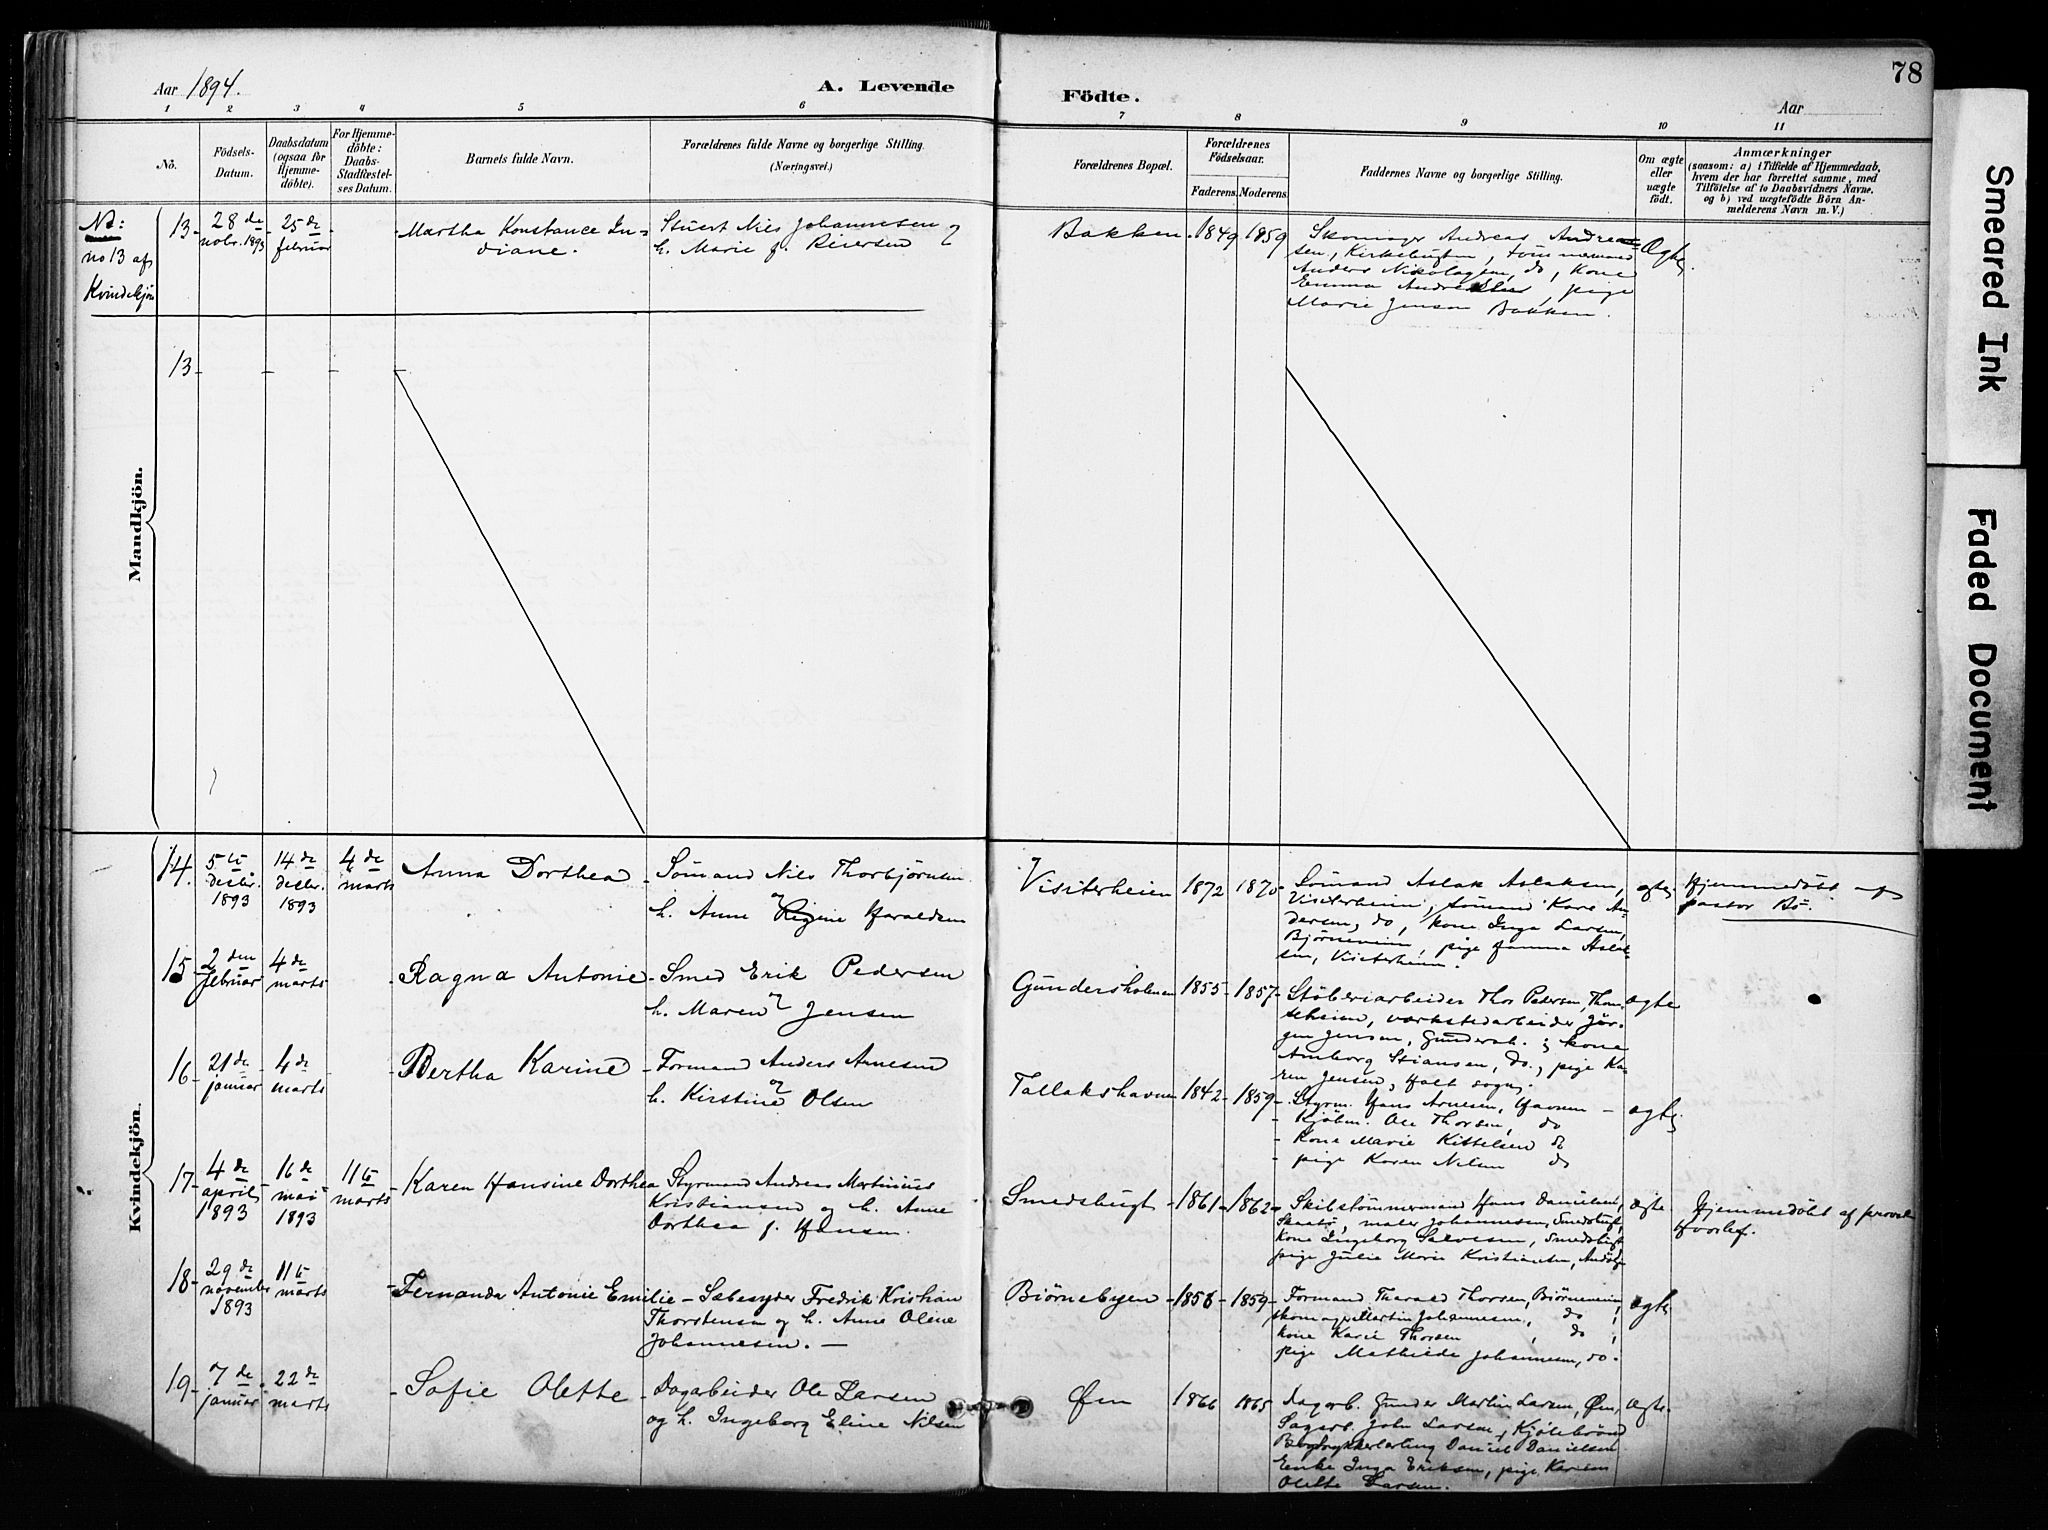 78
Aar 1894.
A. Levende
Födte.
Aar
1 2 3 4 5 6 7 8 9 10 11
No.
Födsels-
Datum.
Daabsdatum
(ogsaa for
Hjemme-
döbte).
For Hjemme-
döbte:
Daabs-
Stadfæstel-
ses Datum.
Barnets fulde Navn.
Forældrenes fulde Navne og borgerlige Stilling.
(Næringsvei.)
Forældrenes Bopæl.
Forældrenes
Födselsaar.
Faderens. Moderens.
Faddernes Navne og borgerlige Stilling.
Om ægte
eller
uægte
födt.
Anmærkninger
(saasom: a) i Tilfælde af Hjemmedaab,
hvem der har forrettet samme, med
Tilföielse af to Daabsvidners Navne.
og b) ved uægtefödte Börn An-
melderens Navn m. V.)
Nb:
no 13 af
Kvindekjön
13
28 de
novbr. 1893
25 de
februar
Martha Konstance In-
diane.
Stuert Nils Johannesen og
h. Marie f. Reiersen
Bakken
1849
1859
Skomager Andreas Andrea-
sen, Kirkebugten, tømmermand
Anders Nikolaysen, do, kone
Emma, pige
Marie Jensen Bakken.
Ægte
Mandkjön.
13
Kvindekjön.
14.
5te
decbr.
1893
14 de
decbr.
1893
4 de
marts
Anna Dorthea
Sømand Nils Thorbjørnsen
og
h. Anne Regine Haraldsen
Visiterheien
1872
1870
Sømand Aslak Aslaksen,
Visiterheien, sømand Karl An-
dersen, do, kone Inga Larsen,
Bjørneveien, pige Hanna Aslak-
sen, Visiterheien.
ægte
Hjemmedöbt af
pastor Bö.
15
2 den
februar
4 de
marts
Ragna Antonie
Smed Erik Pedersen
og
h. Maren Jensen
Gundersholmen
1855
1857
Støberiarbeider Thor Pedersen, Thom-
seheien, værkstedarbeider Jør-
gen Jensen, Gundersh.; kone
Amborg Stiansen, do., pige Ka-
ren Jensen, Holt sogn.
ægte
16
21 de
januar
4 de
marts
Bertha Karine
Formand Anders Arnesen
og
h. Kirstine Olsen
Tallakshavn
1842
1859
Styrm. Hans Arnesen, Havnen
Kjøbm. Ole Thorsen, do
Kone Marie Kittelsen do
pige Karen Nilsen do
ægte.
17
4 de
april
1893
16 de
mai
1893
11te
marts
Karen Hansine Dorthea
Styrmand Andreas Martinius
Kristiansen og h. Anne
Dorthea f. Hansen.
Smedsbugt
1861
1862
Skibstømmermand Hans Danielsen,
Skaatø, maler Johannesen, Smedsbugt,
kone Ingeborg Salvesen, Smedsbugt
pige Julie Marie Kristiansen,
ægte.
Hjemmedöbt af provst
Hvoslef.
18
29 de
november
1893
11te
marts
Fernanda Antonie Emilie
Sæbesyder Fredrik Kristian
Thorstensen og h. Anne Oline
Johannesen.
Biørnebyen
1856
1859
Formand Tharald Thorsen, Biørneveien,
skomager Martin Johannesen, do,
kone Karie Thorsen, do,
pige Mathilde Johannesen, do.
ægte
19
7 de
januar
22 de
marts
Sofie Olette
Dagarbeider Ole Larsen
og h. Ingeborg Eline Nilsen
Øen
1866
1865
Dagarb. Gunder Martin Larsen, Øen,
Sagarb. John Larsen, Kjølebrønd
Bogtrykkerlærling Daniel Danielsen
Enke Inga Eriksen, pige Karien
Olette Larsen.
ægte.
Smeared Ink
Faded Document